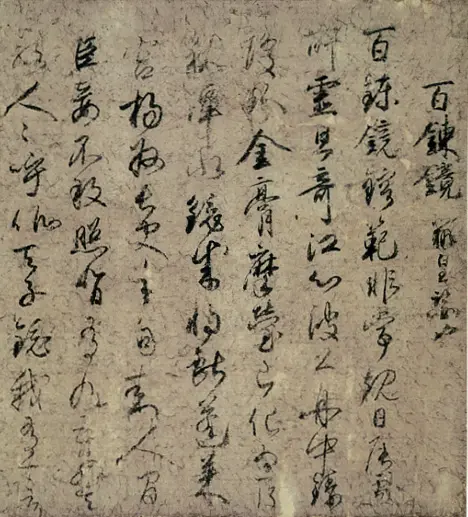 百鍊鏡 辨皇王鑒也
百鍊鏡鎔範非常規日辰處
所靈且奇江心波上舟中鑄
瓊粉金膏摩瑩已化為一片
秋潭水鏡成將獻蓬萊
宮楊州長吏手自封人間
臣妾不敢照背有九五飛天
龍人〻呼為天子鏡我有一言